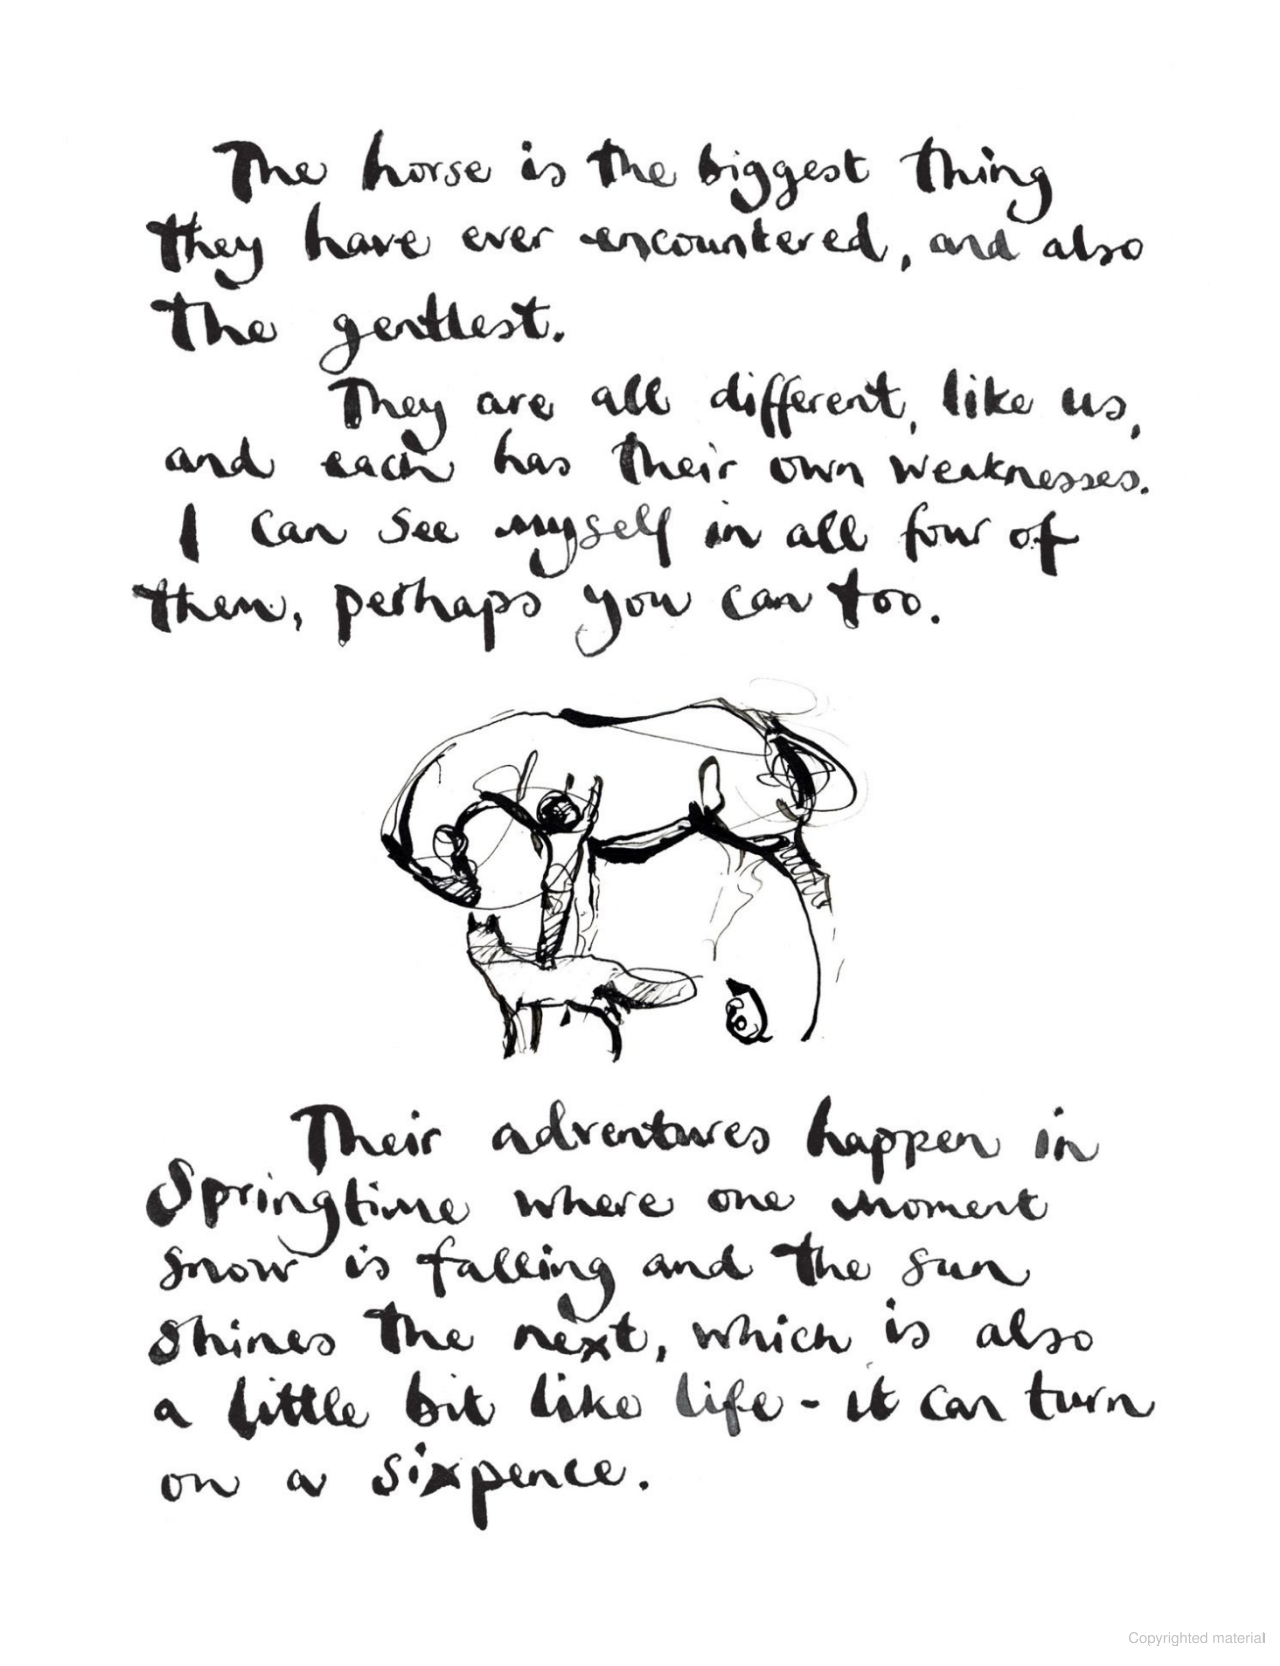 The horse is the biggest thing
they have ever encountered, and also
the gentlest.
They are all different, like us,
and each has their own weaknesses.
I can see myself in all four of
them, perhaps you can too.
Their adventures happen in
Springtime where one moment
snow is falling and the sun
shines the next, which is also
a little bit like life - it can turn
on a sixpence.
Copyrighted material